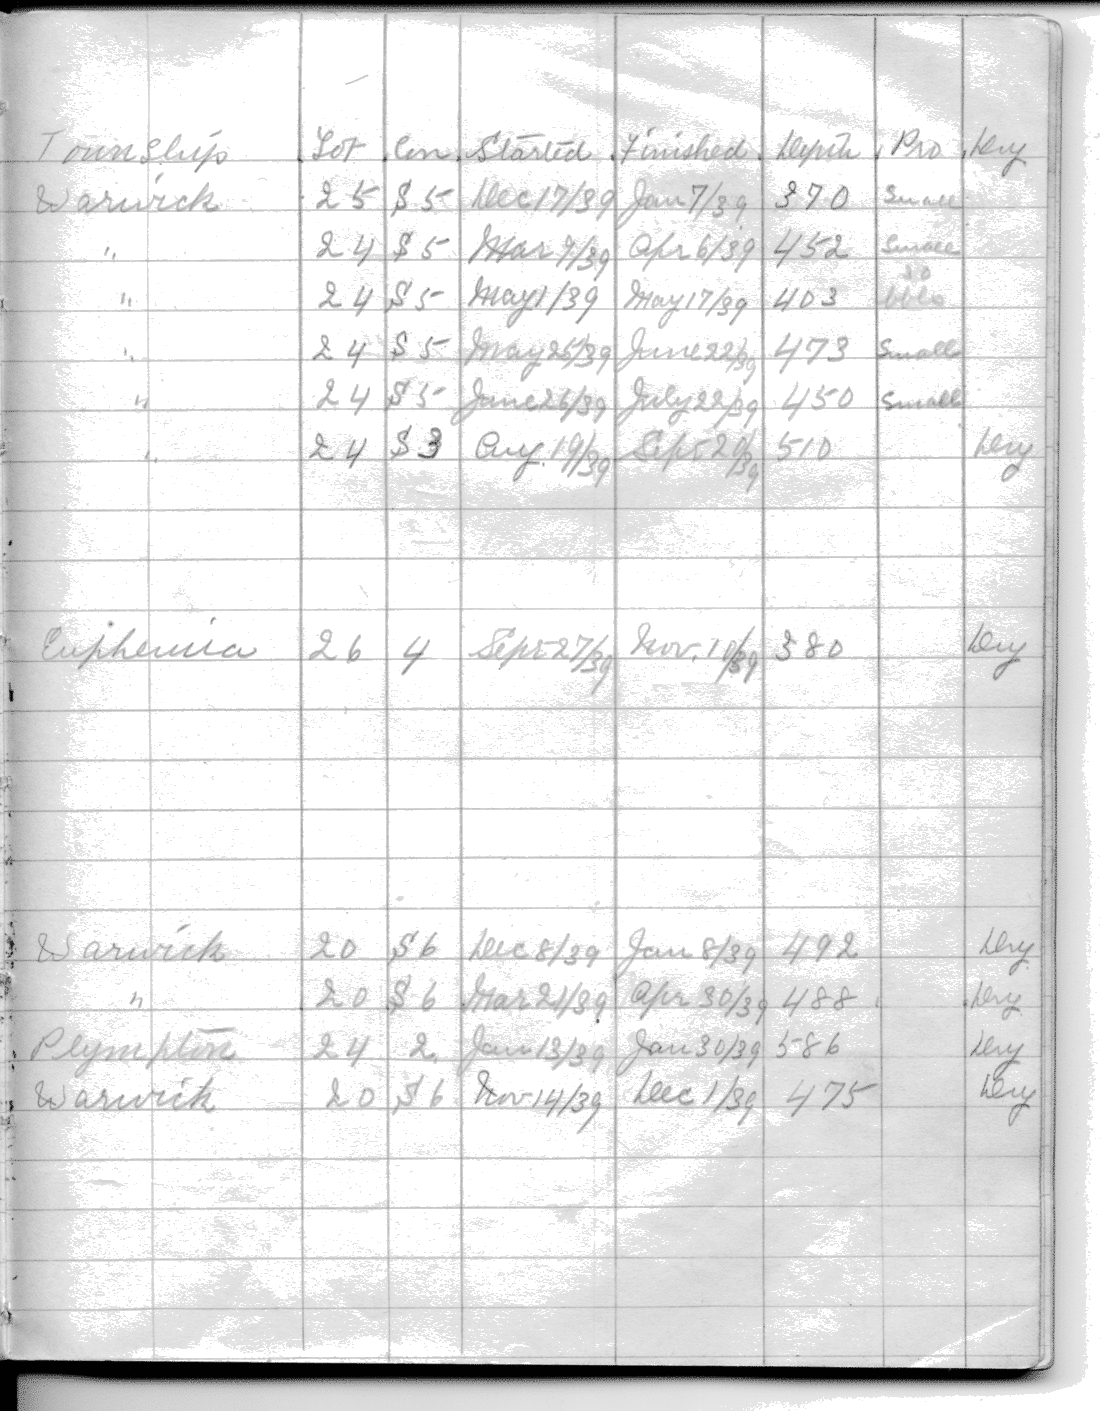 Township Lot Con Started Finished Depth Pro Dry
Warwick 25 $5 Dec 17/39 Jan 7/39 370 Small
" 24 $5 Mar 9/39 Apr 6/39 452 Small
" 24 $5 May 1/39 May 17/39 403 10 bbls
" 24 $5 May 25/39 June 22/39 473 Small
" 24 $5 June 26/39 July 22/39 450 Small
" 24 $3 Aug. 19/39 Sept 20/39 510 Dry
Euphemia 26 4 Sept 27/39 Nov. 10/39 380 Dry
Warwick 20 $6 Dec 8/39 Jan 8/39 492 Dry
" 20 $6 Mar 21/39 Apr 30/39 488 Dry
Plympton 24 2 Jan 13/39 Jan 30/39 586 Dry
Warwick 20 $6 Nov 14/39 Dec 1/39 475 Dry